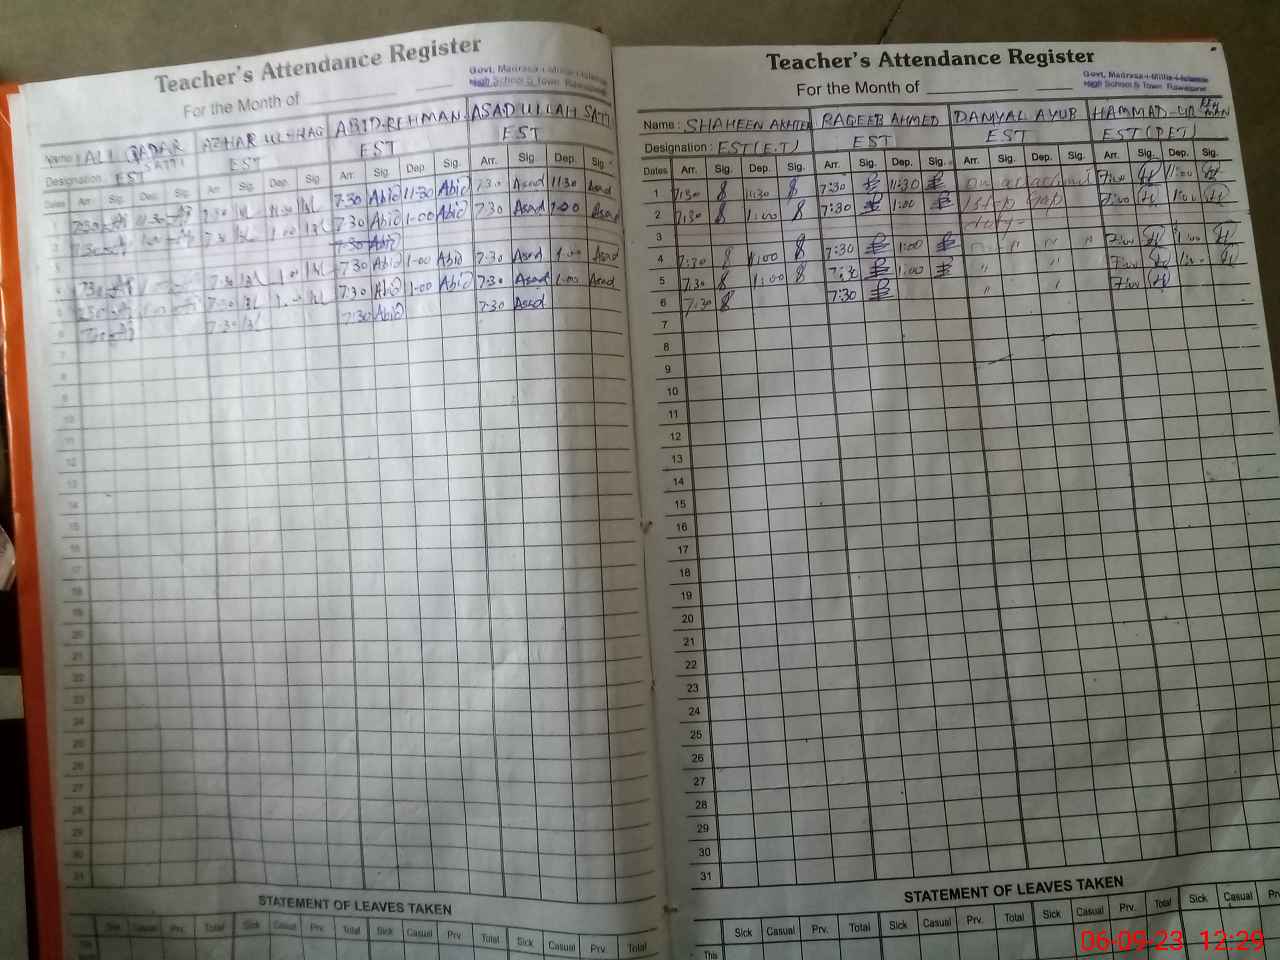 Teacher's Attendance Register
Govt. Madrasa-i-Millia-i-Islamia
High School S Town Rawalpindi
For the Month of
Name : ALI QADAR SATTI AZHAR UL-HAQ ABID-REHMAN ASAD ULLAH SATTI
Designation : EST EST EST EST
Dates Arr. Sig. Dep. Sig. Arr. Sig. Dep. Sig. Arr. Sig. Dep. Sig. Arr. Sig. Dep. Sig.
1 7:30 11:30 7:30 11:30 7:30 Abid 11-30 Abid 7:30 Asad 11:30 Asad
2 7:30 1:00 7:30 1:00 7:30 Abid 1-00 Abid 7:30 Asad 1:00 Asad
3 7:30 Abid
4 7:30 1:00 7:30 1:00 7:30 Abid 1-00 Abid 7:30 Asad 1:00 Asad
5 7:30 1:00 7:30 1:00 7:30 Abid 1-00 Abid 7:30 Asad 1:00 Asad
6 7:30 7:30 7:30 Abid 7:30 Asad
7
8
9
10
11
12
13
14
15
16
17
18
19
20
21
22
23
24
25
26
27
28
29
30
31
STATEMENT OF LEAVES TAKEN
Sick Casual Prv. Total Sick Casual Prv. Total Sick Casual Prv. Total Sick Casual Prv. Total
This
Teacher's Attendance Register
Govt. Madrasa-i-Millia-i-Islamia
High School S Town Rawalpindi
For the Month of
Name : SHAHEEN AKHTER RAQEEB AHMED DANYAL AYUB HAMMAD-UR REHMAN
Designation : EST (E.T) EST EST EST (PET)
Dates Arr. Sig. Dep. Sig. Arr. Sig. Dep. Sig. Arr. Sig. Dep. Sig. Arr. Sig. Dep. Sig.
1 7:30 11:30 7:30 11:30 on attachment 7:00 11:00
2 7:30 1:00 7:30 1:00 7:00 1:00
3 duty
4 7:30 1:00 7:30 1:00 " " " " 7:00 1:00
5 7:30 1:00 7:30 1:00 " " 7:00 1:00
6 7:30 7:30 " " 7:00
7
8
9
10
11
12
13
14
15
16
17
18
19
20
21
22
23
24
25
26
27
28
29
30
31
STATEMENT OF LEAVES TAKEN
Sick Casual Prv. Total Sick Casual Prv. Total Sick Casual Prv. Total Sick Casual Prv.
This
06-09-23 12:29